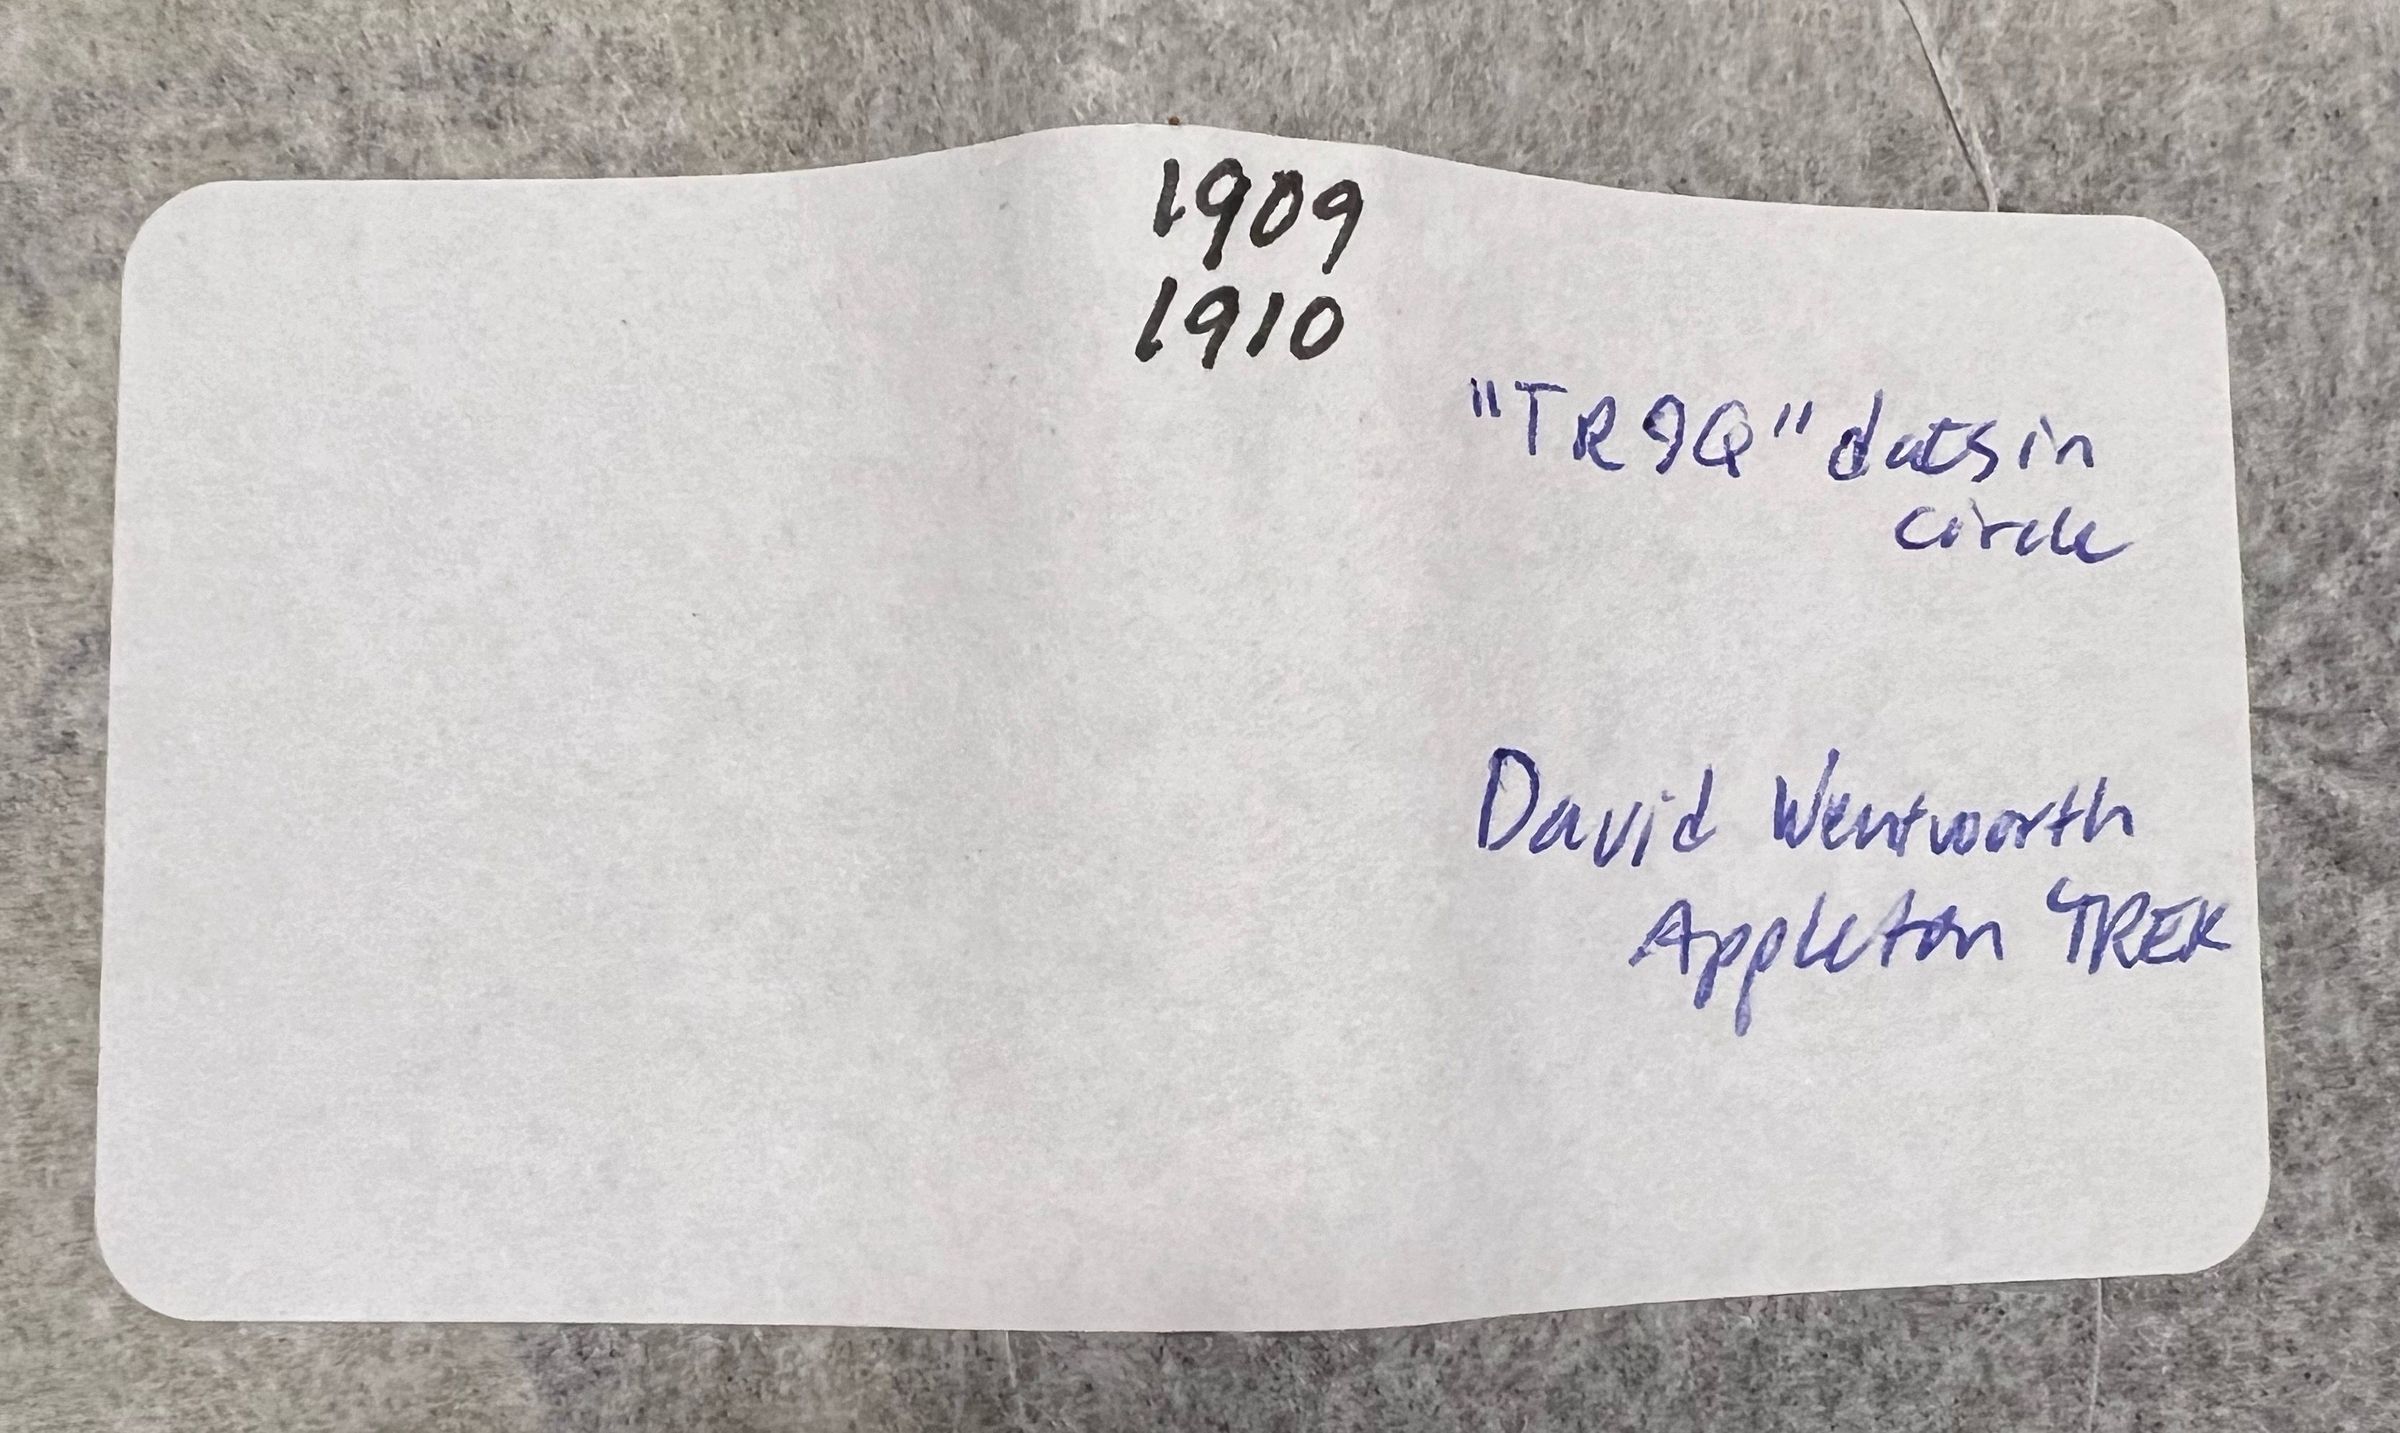 1909
1910
"TR9Q" dots in
circle
David Wentworth
Appleton TREK